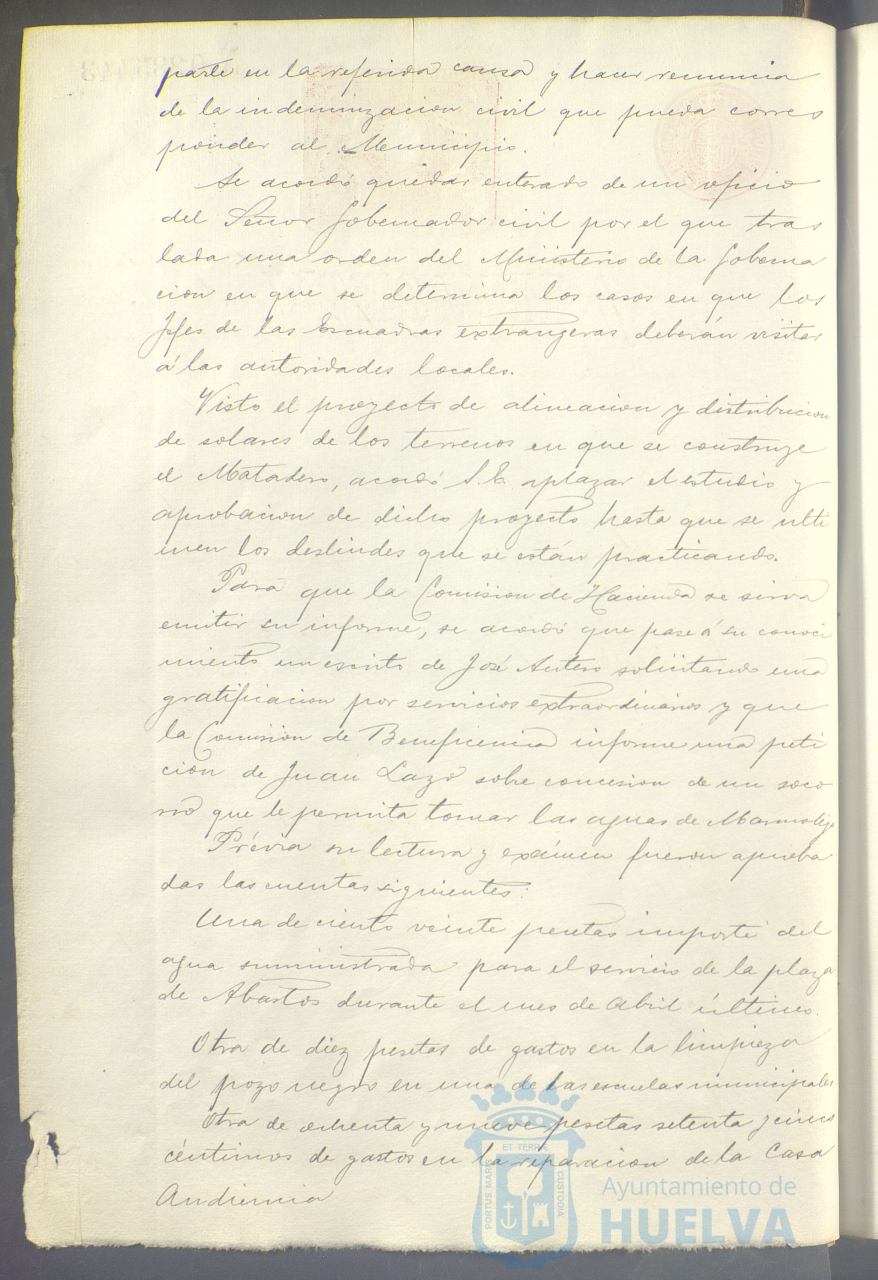 parte en la referida causa y hacer renuncia
de la indemnizacion civil que pueda corres
ponder al Municipio.
Se acordó quedar enterado de un oficio
del Señor Gobernador civil por el que tras
lada una orden del Ministerio de la Goberna
cion en que se determina los casos en que los
Jefes de las Escuadras extrangeras deberán visitar
á las autoridades locales.
Visto el proyecto de alineacion y distribucion
de solares de los terrenos en que se construye
el Matadero, acordó S.E. aplazar el estudio y
aprobacion de dicho proyecto hasta que se ulti
men los deslindes que se están practicando.
Para que la Comision de Hacienda se sirva
emitir su informe, se acordó que pase á su conoci
miento un escrito de José Antero solicitando una
gratificacion por servicios extraordinarios y que
la Comision de Beneficencia informe una peti
cion de Juan Lazo sobre concesion de un soco
rro que le permita tomar las aguas de Marmolejo
Prévia su lectura y exámen fueron aproba
das las cuentas siguientes:
Una de ciento veinte pesetas importe del
agua suministrada para el servicio de la plaza
de Abastos durante el mes de Abril último.
Otra de diez pesetas de gastos en la limpieza
del pozo negro en una de las escuelas municipales
Otra de ochenta y nueve pesetas setenta y cinco
céntimos de gastos en la reparacion de la Casa
Audiencia
PORTUS MARIS
ET TERRE
CUSTODIA
Ayuntamiento de
HUELVA